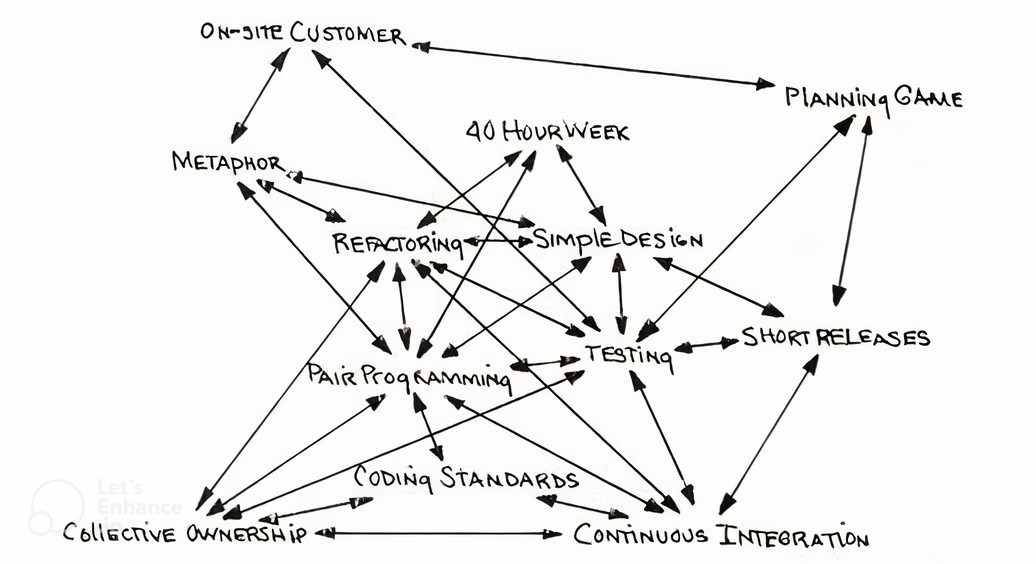 ON-SITE CUSTOMER
PLANNING GAME
40 HOUR WEEK
METAPHOR
REFACTORING
SIMPLE DESIGN
SHORT RELEASES
TESTING
PAIR PROGRAMMING
CODING STANDARDS
Let's
Enhance
.io
COLLECTIVE OWNERSHIP
CONTINUOUS INTEGRATION